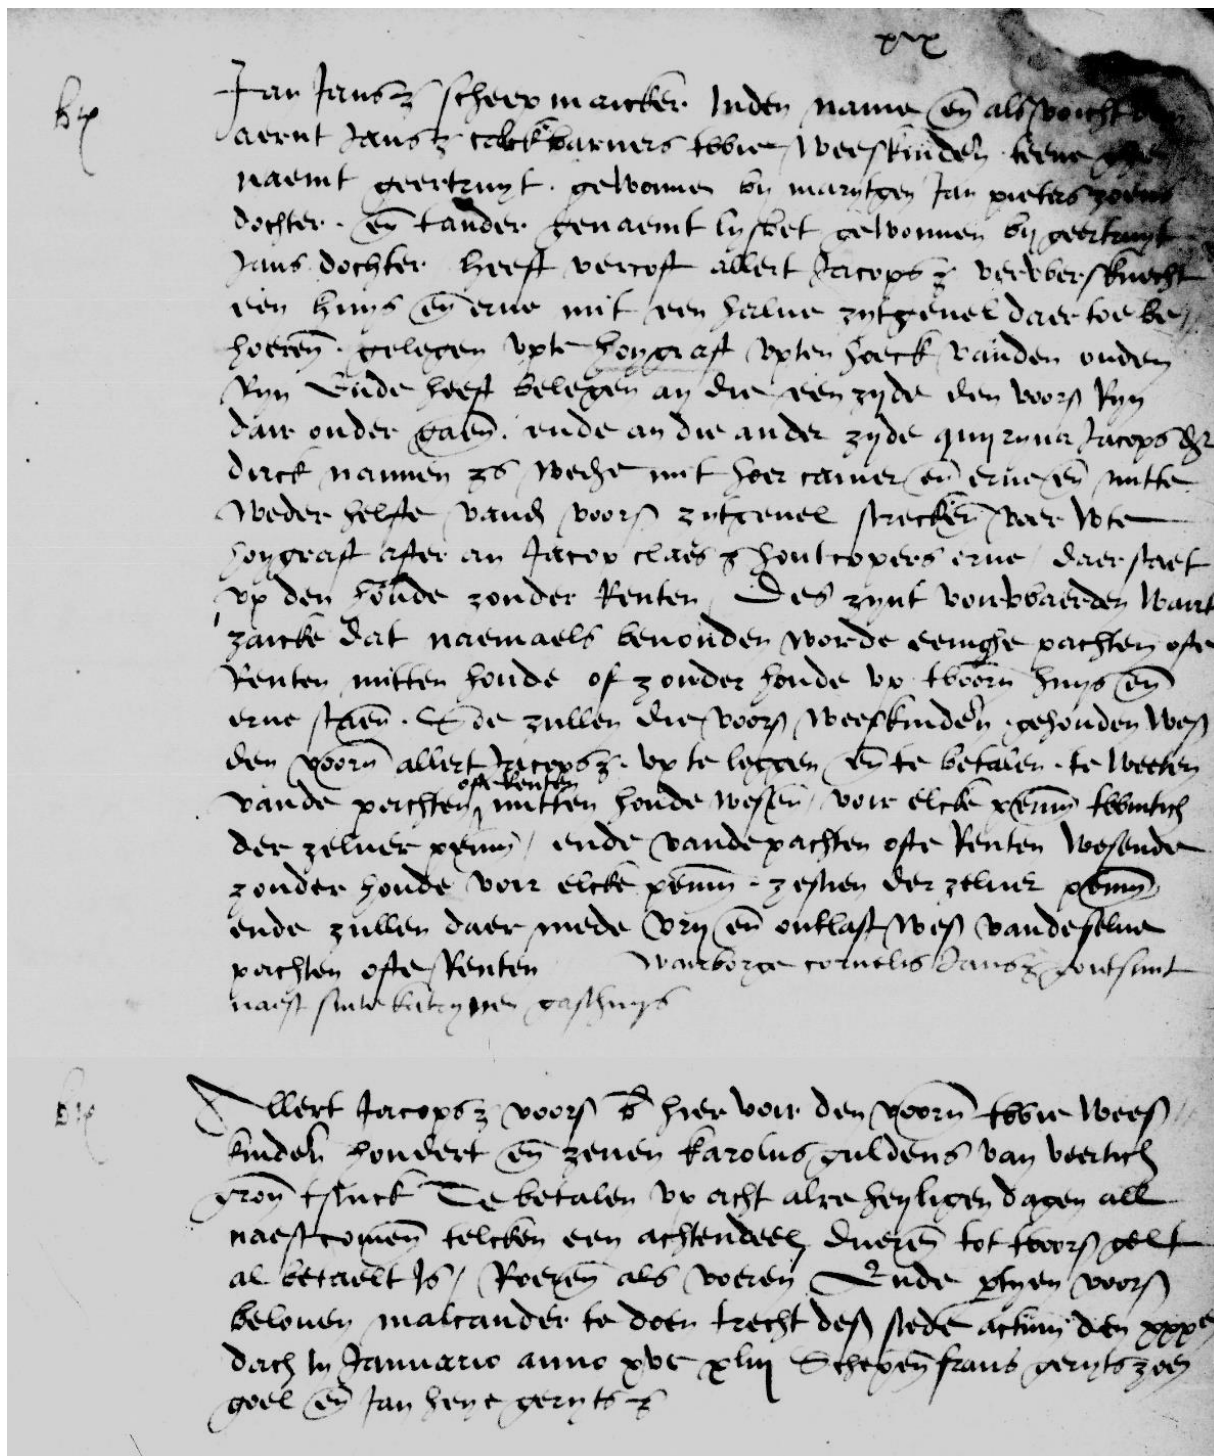 xix
Jan Jans z scheepmaicker Inden name en als voicht van
aernt Jans z calckbarners twie weeskinden teene ghe
naemt geertruyt . gewonnen by marytgen Jan pieters zoens
dochter . en tander genaemt lysbet gewonnen by geertruyt
Jans dochter heeft vercoft allert Jacops z verwersknecht
een huys en erue mit een halue zytgeuel daer toe be
hoeren . gelegen vpte hoygraft vpten hoeck vanden ouden
Ryn Ende heeft belegen an die een zyde den voors Ryn
dair onder gaen . ende an die ander zyde quyryna Jacops dr
dirck nannen zs wede mit hoer camer en erue en mitte
weder helfte vand voors zytgeuel strecken voer wte
hoygraft after an Jacop claes z houtcopers erue / daer staet
vp den houde zonder Renten / Des zynt vorwaerden wairt
zaicke dat naemaels beuonden worde eenighe pachten ofte
Renten mitten houde of zonder houde vp tvoorn huys en
erue staen . Soe zullen die voors weeskinden . gehouden wes
den voorn allert Jacops z . vp te leggen en te betalen . te weeten
ofte Renten
vande pachten mitten houde wesen / voir elcke penn twintich
der zeluer penn / ende vande pachten ofte Renten wesende
zonder houde voir elcke penn . zestien der zeluer penn
ende zullen daer mede vry en ontlast wes vandeselue
pachten ofte Renten wairborge cornelis Jans z goutsmit
naest sinte katrynen gasthuys
Allert Jacops z voors b hier voir den voorn twie wees
kinden hondert en zeuen karolus guldens van veertich
gron tstuck Te betalen vp acht alre heyligen dagen all
naestcomen telcken een achtendeel dueren tot tvoors gelt
al betaelt Is / Roeren als voeren Ende ptyen voors
belouen malcander te doen trecht des stede actum den xxxen
dach In Januario anno xvc xliij Schepen frans geryts zoen
goel en Jan heye geryts z